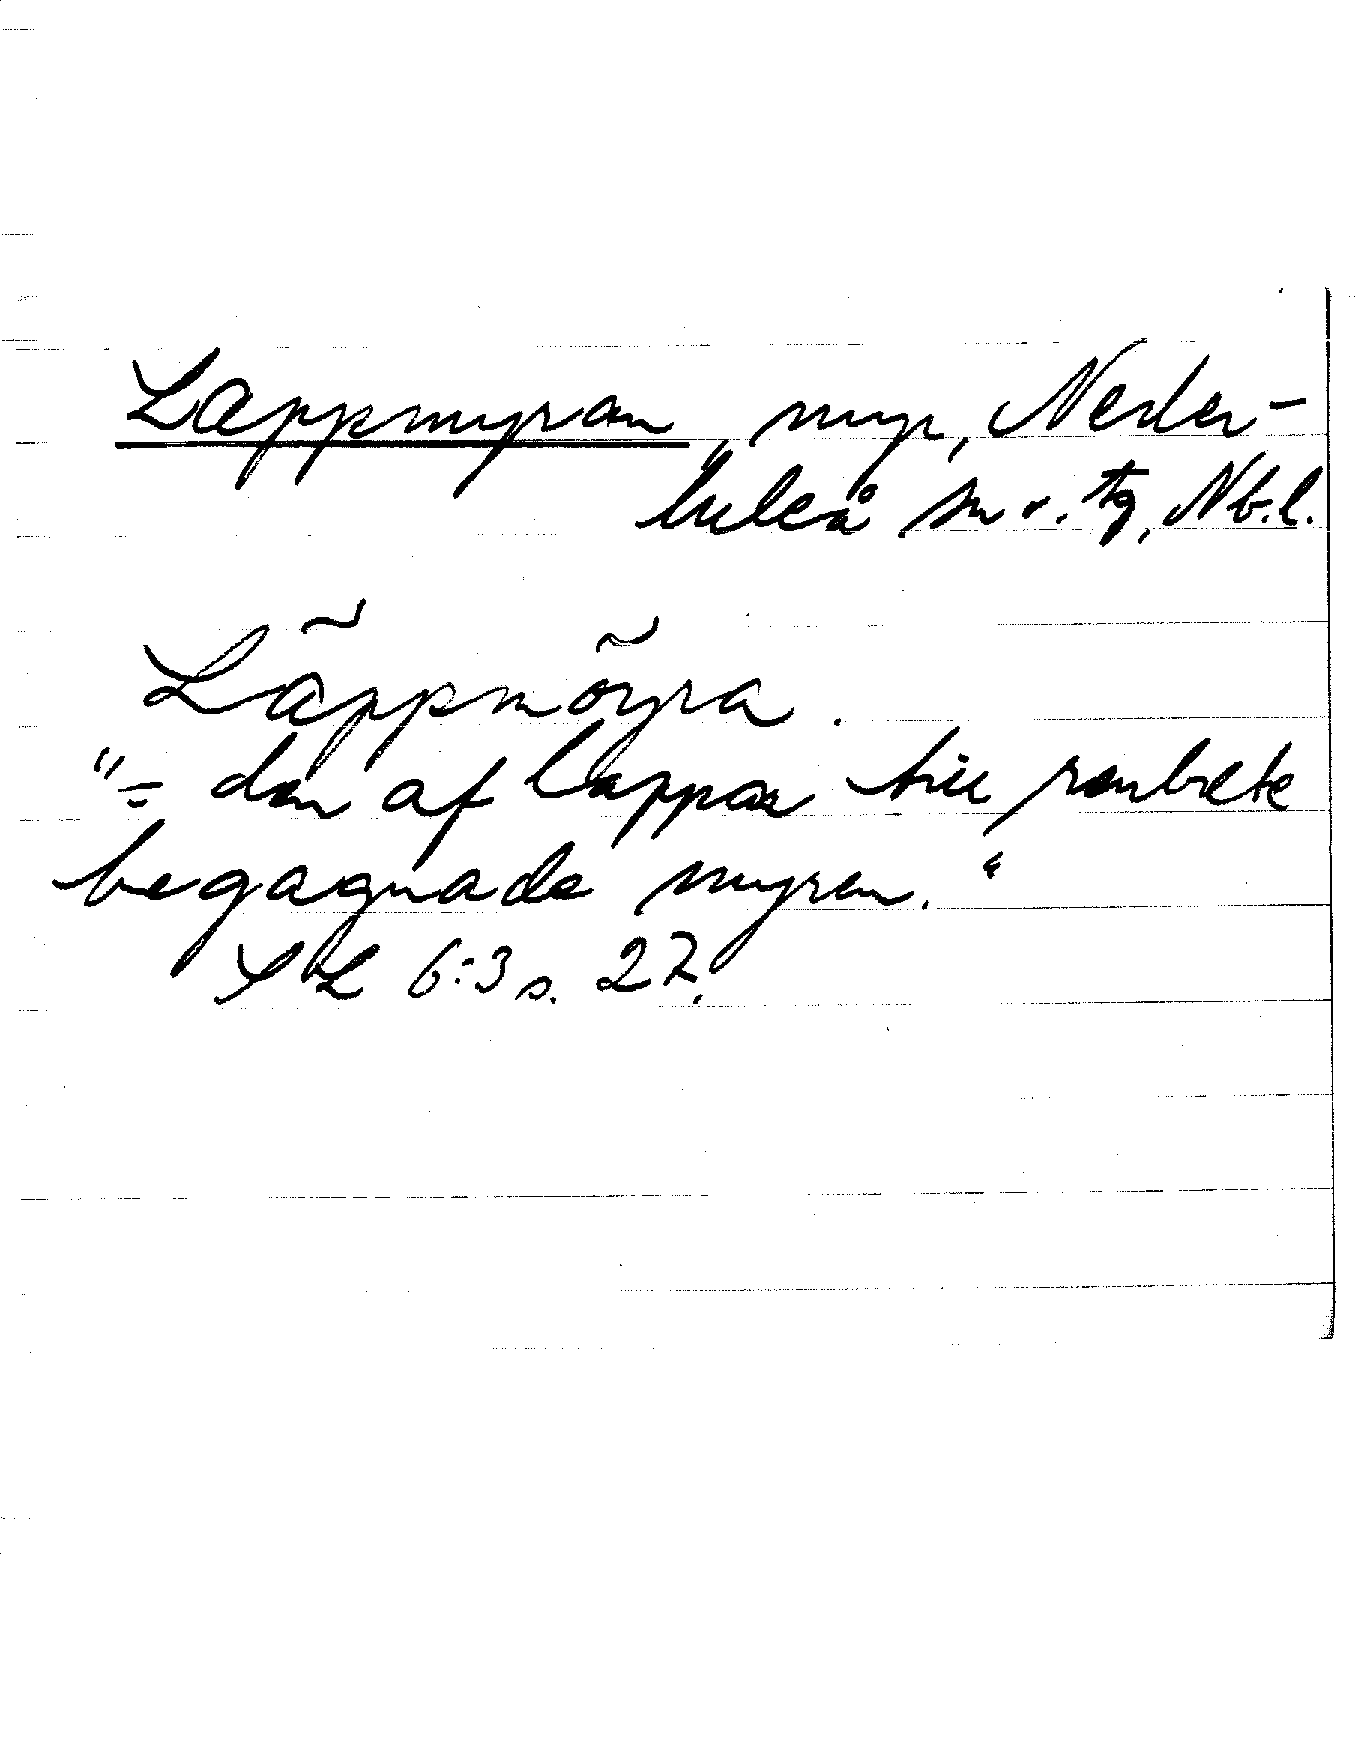 Lappmyran, myr, Neder-
luleå sn o. tg, Nb.l.
Lãppmõyra.
"= den af lappar till renbete
begagnade myren."
SL 6:3 s. 27.